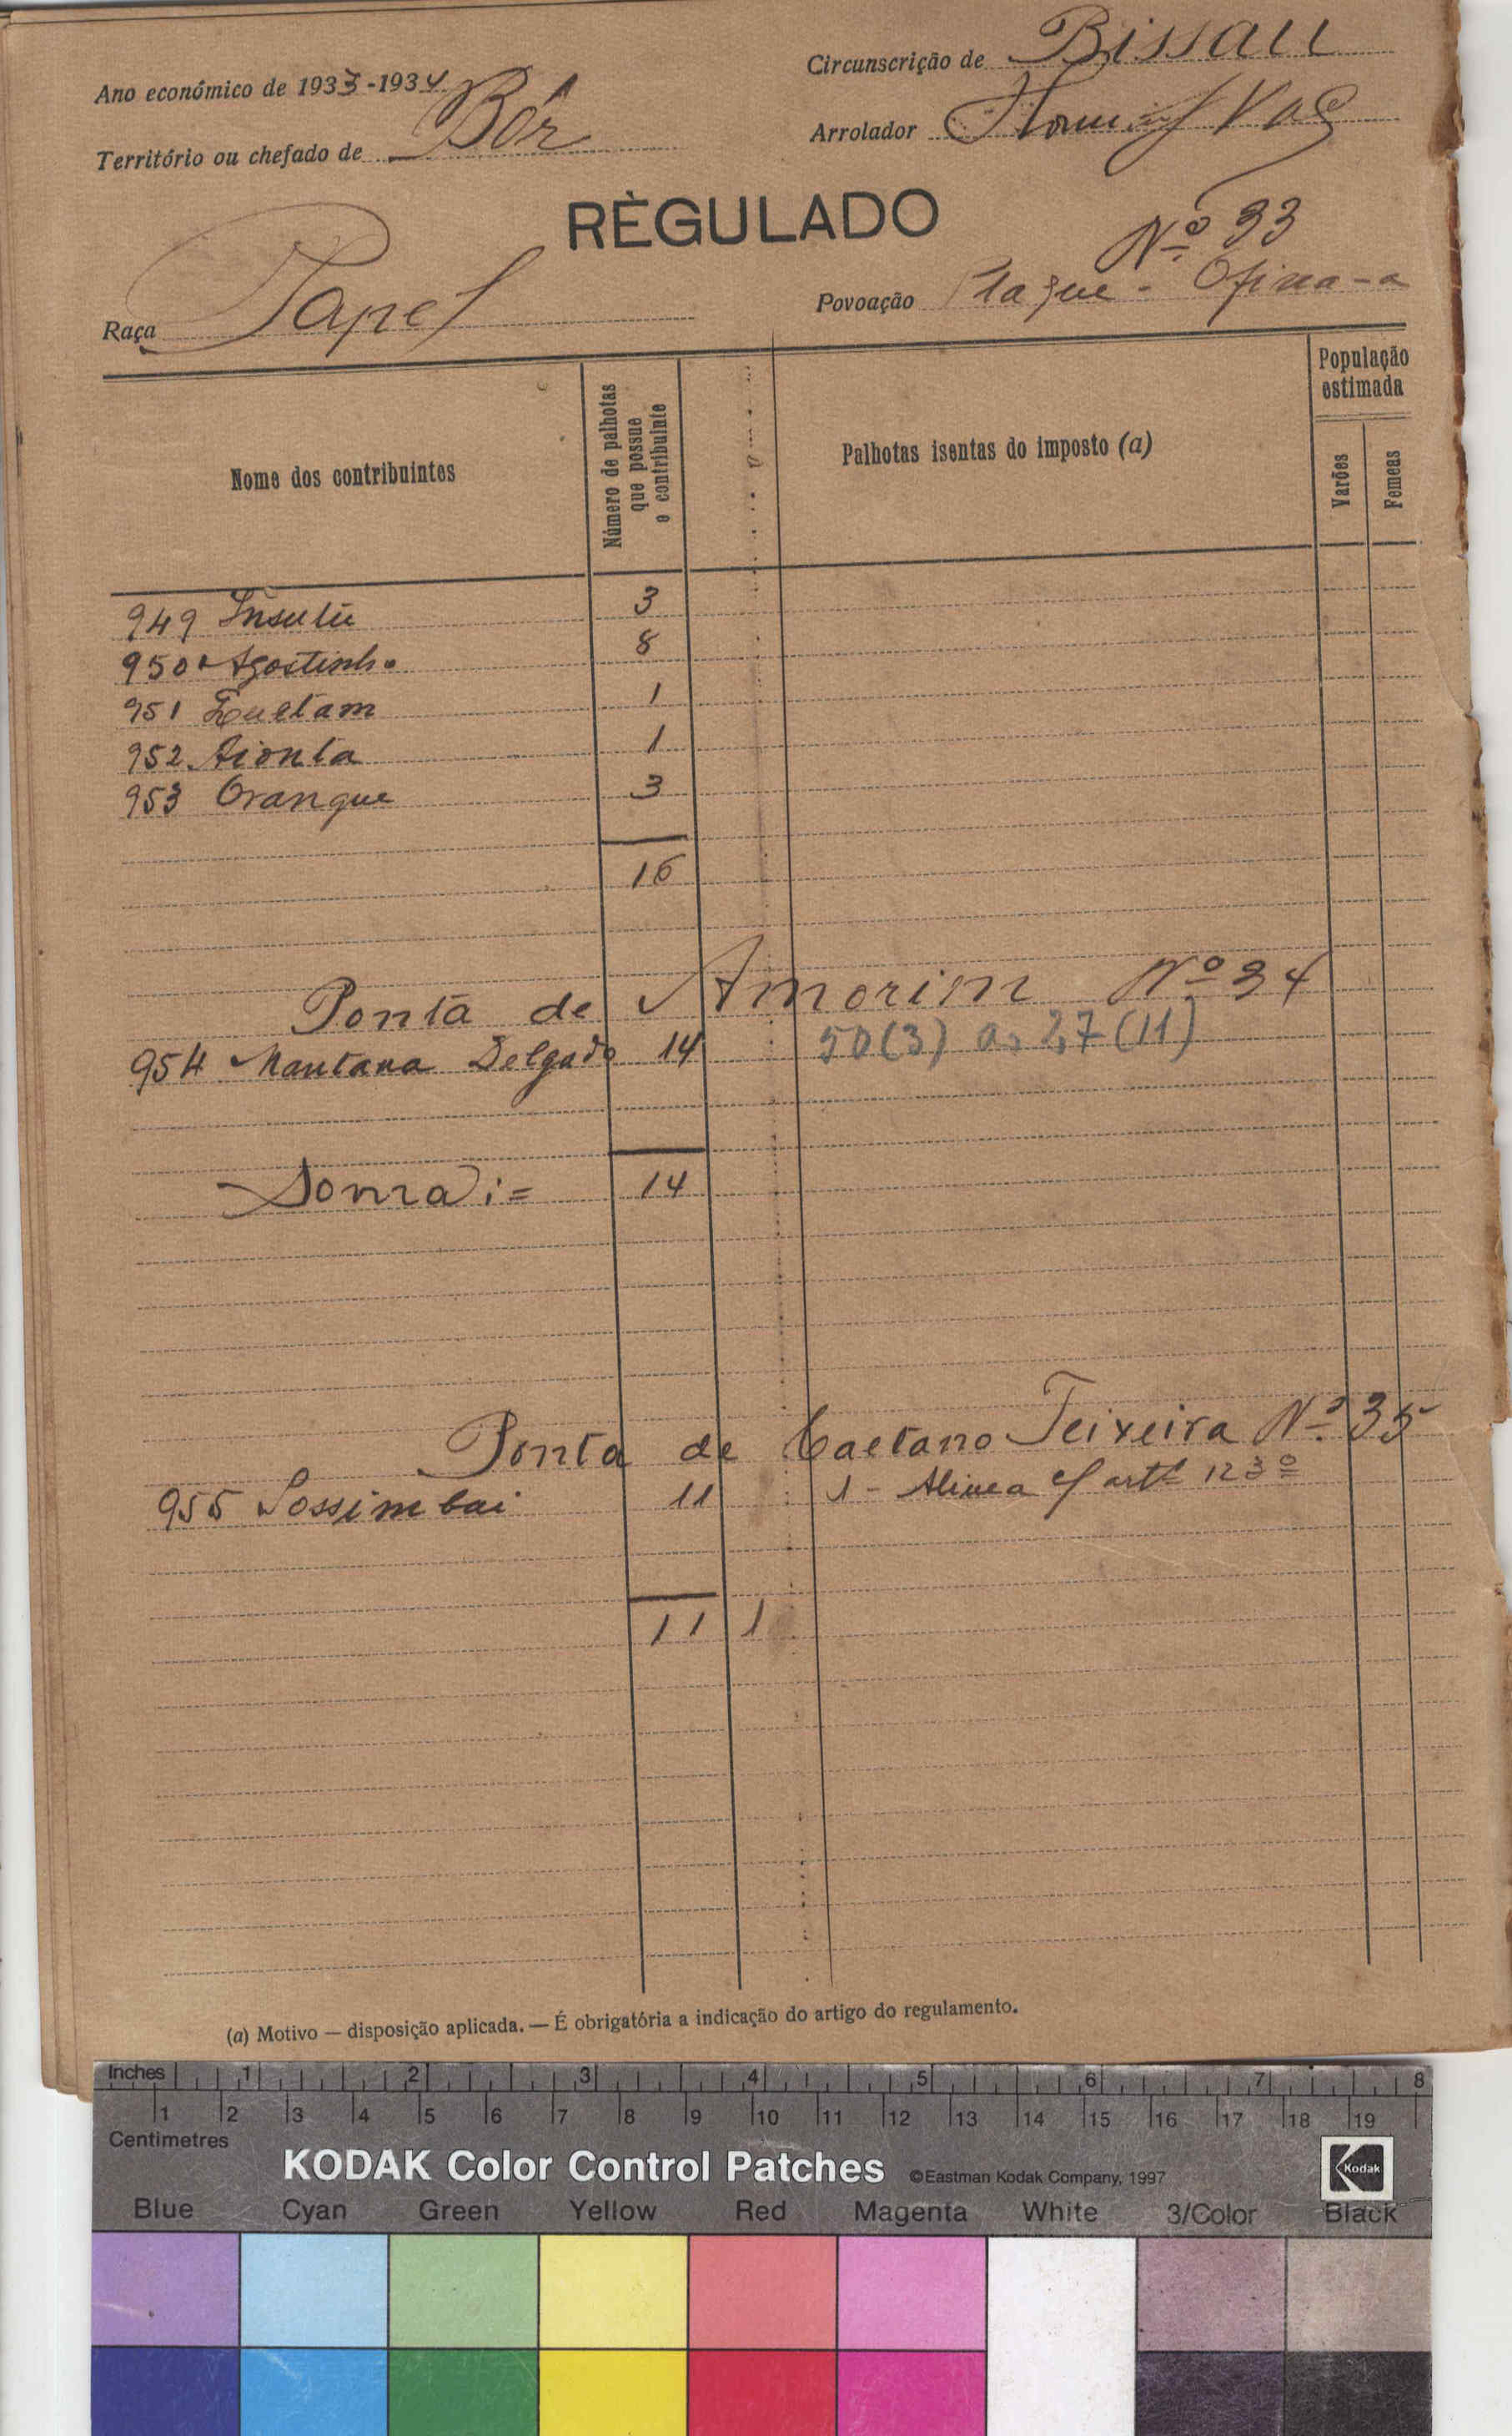 Ano económico de 1933-1934
Circunscrição de Bissau
Território ou chefado de Bór
Arrolador Vaz
RÈGULADO
Nº 33
Raça Papel
Povoação
Nome dos contribuintes
Número de palhotas que possue o contribuinte
Palhotas isentas do imposto (a)
População estimada
Varões
Femeas
949 Insulú 3
950 Agostinho 8
951 1
952 Aionta 1
953 Orangue 3
16
Ponta de Amorim Nº 34
954 Mantana Delgado 14 50(3) a, 27(11)
Soma:= 14
Ponta de Caetano Teixeira Nº 35
955 Sossimbai 11 1 - Alinea f art 123º
11 1
(a) Motivo — disposição aplicada. — É obrigatória a indicação do artigo do regulamento.
Inches 1 2 3 4 5 6 7 8
1 2 3 4 5 6 7 8 9 10 11 12 13 14 15 16 17 18 19
Centimetres
KODAK Color Control Patches ©Eastman Kodak Company, 1997 Kodak
Blue Cyan Green Yellow Red Magenta White 3/Color Black